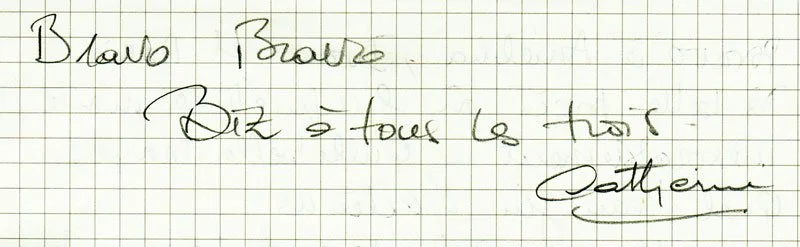 Bravo Bravo
Biz à tous les trois
Catherine